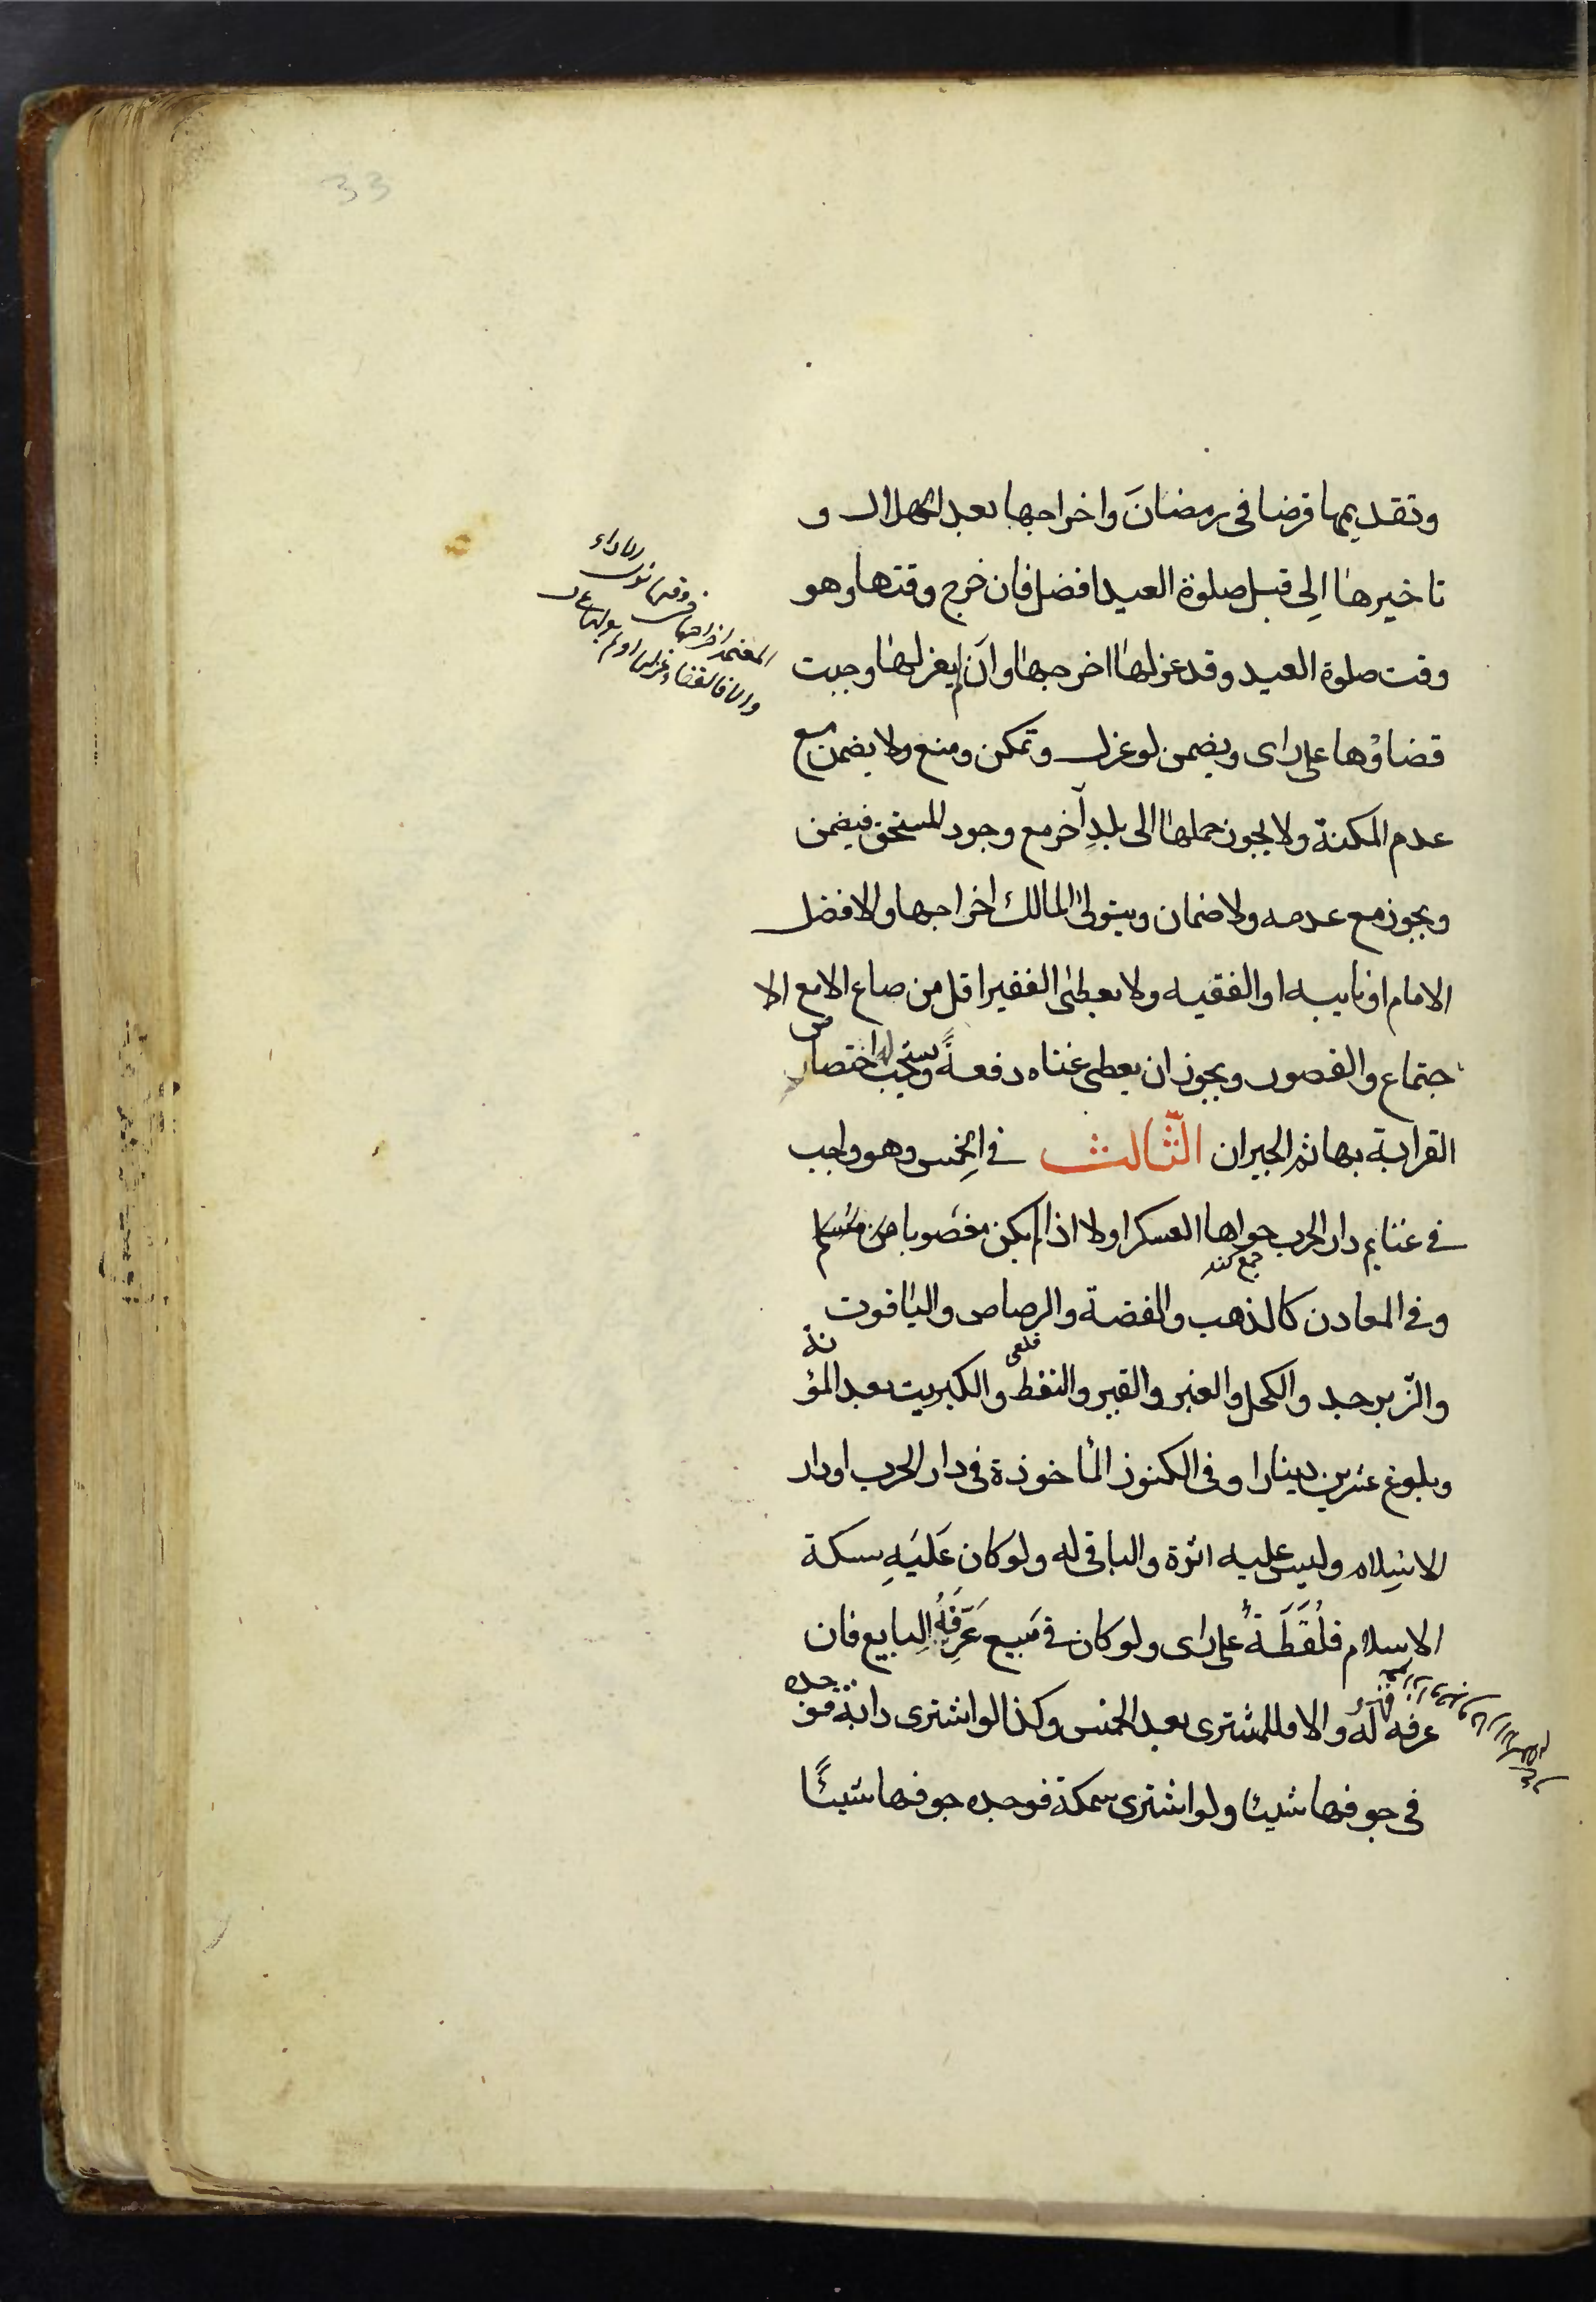 33
وتقديمها قرضا فى رمضانَ واخراجها بعد الهلال و
تاخيرها اِلى قبل صلوة العيد افضل فان خرج وقتها وهو
وقت صلوة العيد وقد عزلها اخرجها وان لم يعزلها وجبت
قضاؤها على راى ويضمن لو عزل وتمكن ومنع ولا يضمن مع
عدم المكنة ولا يجوز حملها الى بلدٍ آخر مع وجود المستحق فيضمن
ويجوز مع عدمه ولا ضمان ويتولى المالك اخراجها والافضل
الامام او نايبه او الفقيه ولا يعطى الفقير اقل من صاع الا مع الا
جتماع والقصور ويجوز ان يعطى غناه دفعةً ويستحب اختصاص
القرابة بها ثم الجيران الثّالث فى الخمس وهو واجب
فى غنايم دار الحرب حواها العسكر اولا اذا لم يكن مغصوبا من مسلم
جمع كند
وفى المعادن كالذهب والفضة والرصاص والياقوت
قلعى
والزّبرجد والكحل والعنبر والقير والنفط والكبريت بعد المؤنة
وبلوغ عشرين دينارا وفى الكنوز المأخوذة فى دار الحرب او دار
الاسلام وليس عليه اثرة والباقى له ولو كان عَلَيهِ سكة
الاسلام فلُقَطَةٌ على راى ولو كان فى مَبيع عَرّفَهُ البايع فان
عرفه فهو لَهُ والا فللمشترى بعد الخمس وكذا لو اشترى دابة فوجده
فى جوفها شيئا ولو اشترى سمكة فوجده جوفها شيئًا
المعتمد اخراجها فى وقتها